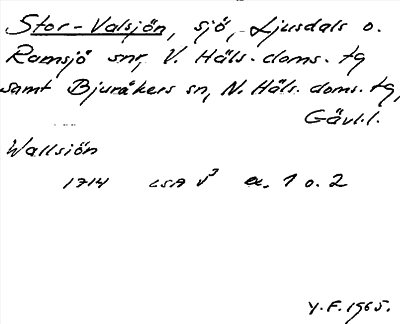 Stor-Valsjön, sjö, Ljusdals o.
Ramsjö snr, V. Häls. doms. tg
samt Bjuråkers sn, N. Häls. doms. tg,
Gävl.l.
Wallsiön
1714 LSA V³ a. 1 o. 2
Y.F. 1965.